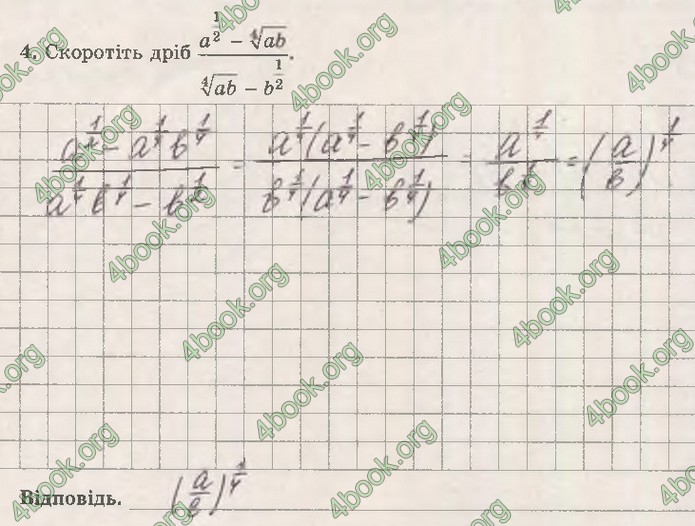 4. Скоротіть дріб (a^(1/2) − ∜(ab)) / (∜(ab) − b^(1/2)).
(a^(1/2) − a^(1/4) b^(1/4)) / (a^(1/4) b^(1/4) − b^(1/2)) = (a^(1/4)(a^(1/4) − b^(1/4))) / (b^(1/4)(a^(1/4) − b^(1/4))) = a^(1/4) / b^(1/4) = (a/b)^(1/4)
Відповідь. (a/b)^(1/4)
4book.org